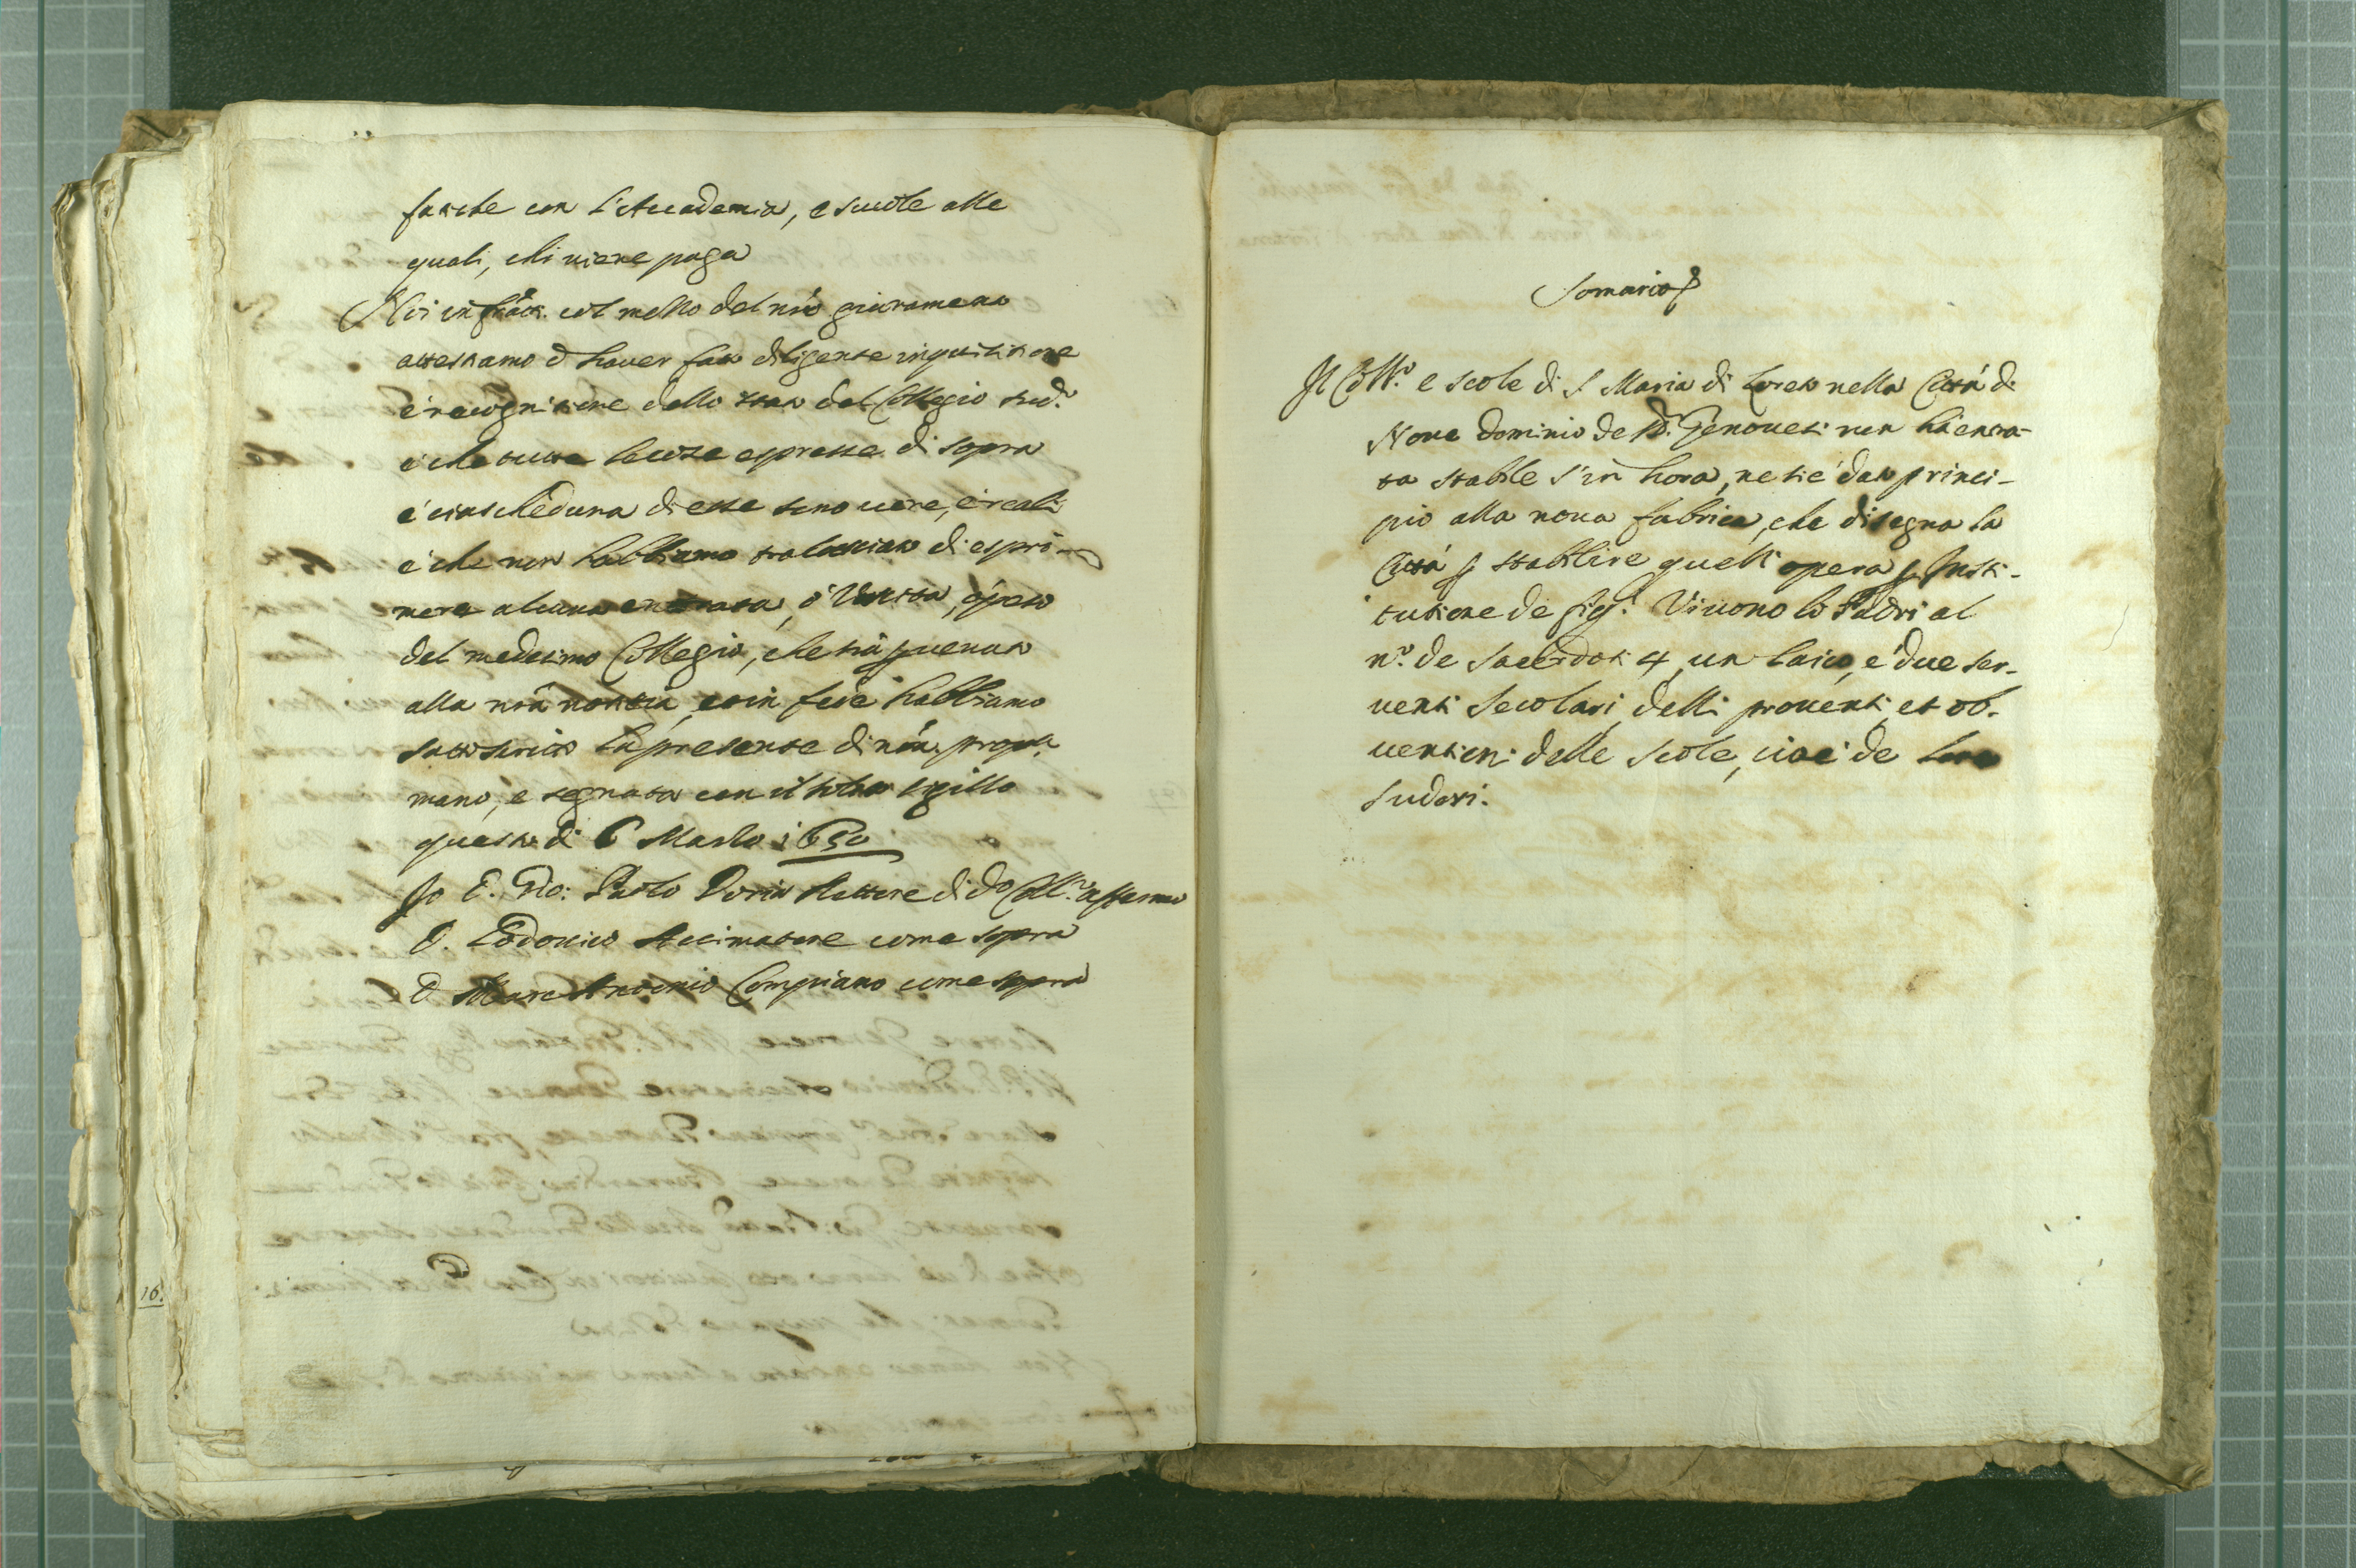 fatiche con l'Accademia, e scuole alle
quali, chi viene paga
Noi infratti. col mezzo del nro giuramento
attestiamo d'haver fato diligente inquisitione
é recognitione dello stato del Collegio sud.o
é che tutte le cose espresse di sopra
é ciascheduna di esse sono vere, é reali
é che non habbiamo tralasciato di espri-
mere alcuna entrata, ó Uscita, ó peso
del medesimo Collegio, che sia pervenuto
alla nra notitia, et in fede habbiamo
sottoscritto la presente di nra propria
mano, e segnata con il solito sigillo
questo di 6 Marzo 1650
Io D. Gio: Paolo Doria Rettore di do Coll.o affermo
D. Lodovico Accimatore come sopra
D. Marc Antonio Compiano come sopra
Somario
Il Coll.o e scole di S Maria di Loreto nella Cittá di
Nove dominio de SS.ri Genovesi non há entra-
ta stabile s'in hora, ne si é dato princi-
pio alla nova fabrica, che disegna la
Cittá p stabilire quest opera p Insti-
tutione de figl.i Vivono lo Padri al
n.o de Sacerdoti 4, un laico, é due ser-
venti Secolari delli proventi et ob-
ventioni delle Scole, cioé de loro
sudori.
16.